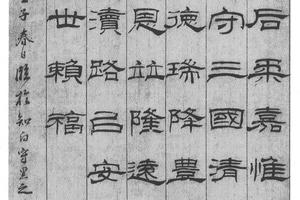 后嘉惟
守三國清
德瑞降豐
恩竝隆遠
瀆路㠯安
世賴福
子春日臨於知白守黑之